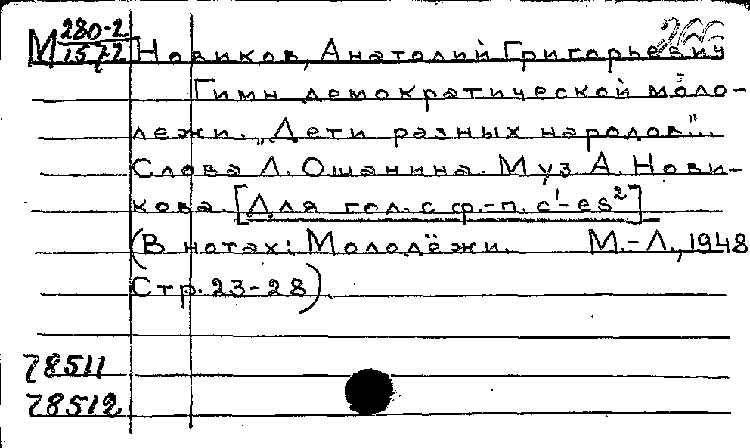 М 280-2
1572
Новиков, Анатолий Григорьевич
Гимн демократической моло-
дежи. „Дети разных народов"...
Слова Л. Ошанина. Муз А. Нови-
кова. [Для гол. с ф.-п. c¹-es²]
(В нотах: Молодёжи. М.-Л., 1948
Стр. 23-28)
78511
78512